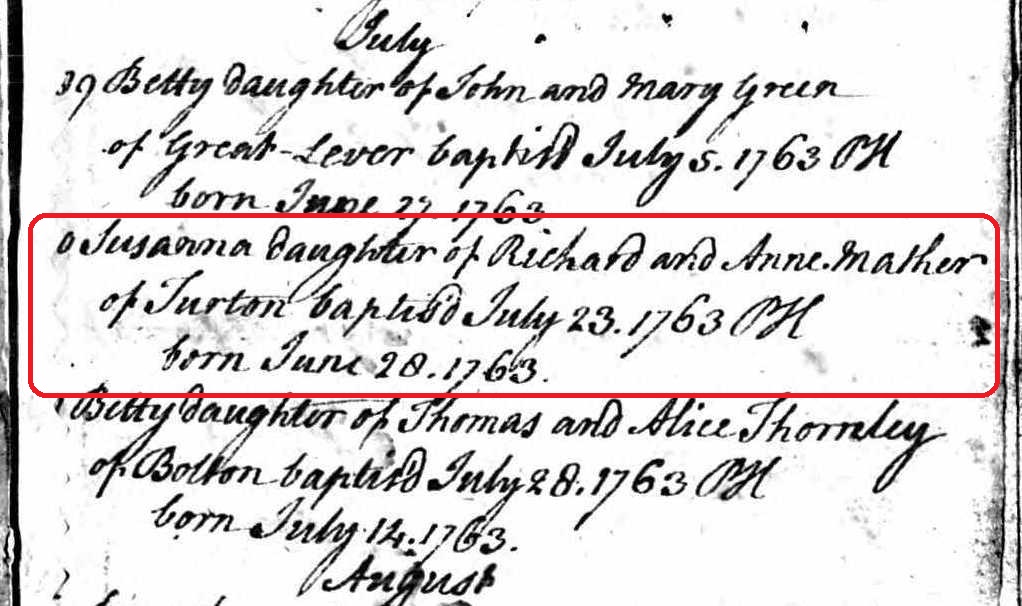 July
39 Betty daughter of John and Mary Green
of Great-Lever baptis'd July 5. 1763 PH
born June 27. 1763
0 Susanna daughter of Richard and Anne Mather
of Turton baptis'd July 23. 1763 PH
born June 28. 1763.
Betty daughter of Thomas and Alice Thornley
of Bolton baptis'd July 28. 1763 PH
born July 14. 1763.
August